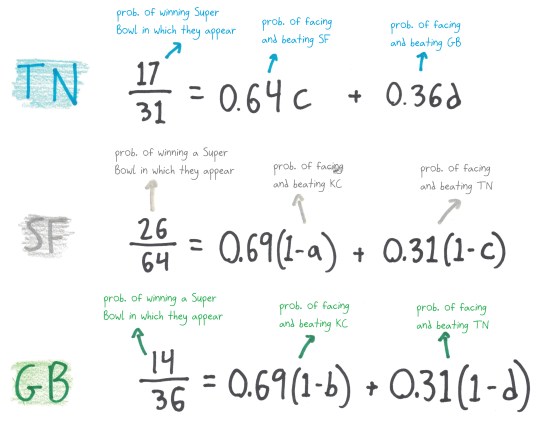 prob. of winning Super
Bowl in which they appear
prob. of facing
and beating SF
prob. of facing
and beating GB
TN
17/31 = 0.64c + 0.36d
prob. of winning a Super
Bowl in which they appear
prob. of facing
and beating KC
prob. of facing
and beating TN
SF
26/64 = 0.69(1-a) + 0.31(1-c)
prob. of winning a Super
Bowl in which they appear
prob. of facing
and beating KC
prob. of facing
and beating TN
GB
14/36 = 0.69(1-b) + 0.31(1-d)